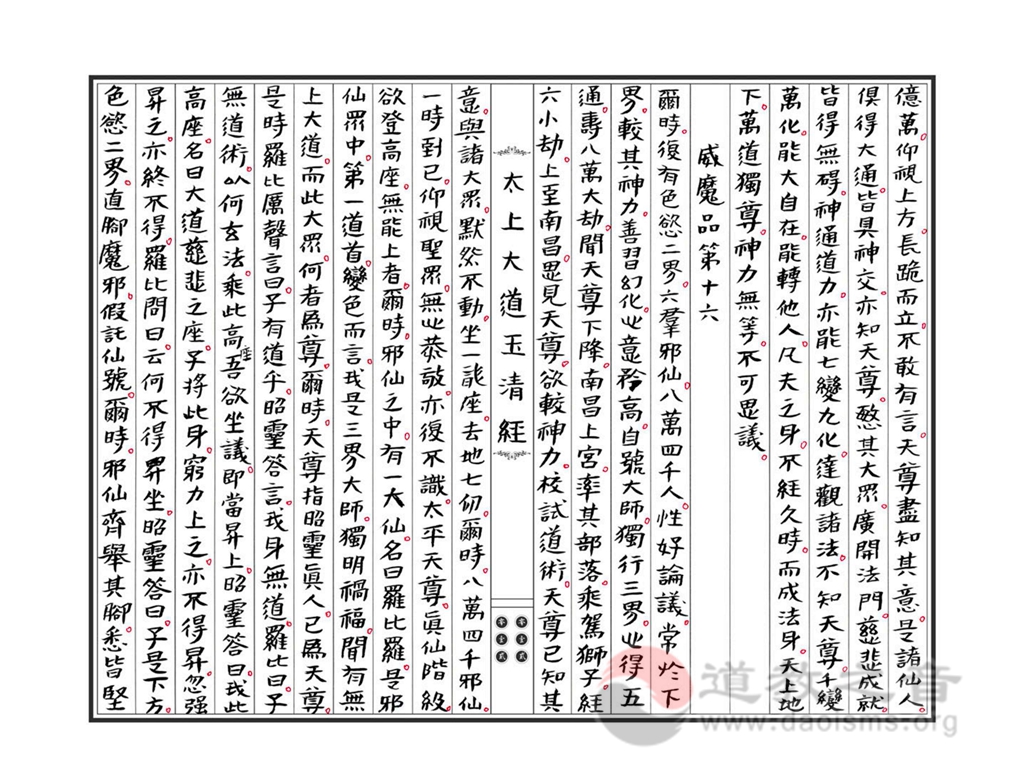 億萬仰視上方長跪而立不敢有言天尊盡知其意是諸仙人
俱得大通皆具神交亦知天尊愍其大眾廣開法門慈悲成就
皆得無碍神通道力亦能七變九化達觀諸法不知天尊千變
萬化能大自在能轉他人凡夫之身不經久時而成法身天上地
下萬道獨尊神力無等不可思議
威魔品第十六
爾時復有色慾二界六羣邪仙八萬四千人性好論議常於下
界較其神力善習幻化心意矜高自號大師獨行三界心得五
通壽八萬大劫聞天尊下降南昌上宮率其部落乘駕獅子經
六小劫上至南昌思見天尊欲較神力校試道術天尊已知其
太上大道玉清經
零壹零
壹貳
意與諸大眾默然不動坐一說座去地七仞爾時八萬四千邪仙
一時到已仰視聖眾無心恭敬亦復不識太平天尊真仙階級
欲登高座無能上者爾時邪仙之中有一大仙名曰羅比羅是邪
仙眾中第一道首變色而言我是三界大師獨明禍福聞有無
上大道而此大眾何者為尊爾時天尊指昭靈真人已為天尊
是時羅比厲聲言曰子有道乎昭靈答言我身無道羅比曰子
無道術以何玄法乘此高座吾欲坐議即當昇上昭靈答曰我此
高座名曰大道慈悲之座子將此身窮力上之亦不得昇忽強
昇之亦終不得羅比問曰云何不得昇坐昭靈答曰子是下方
色慾二界直腳魔邪假託仙號爾時邪仙齊舉其腳悉皆堅
道教之音
www.daoisms.org